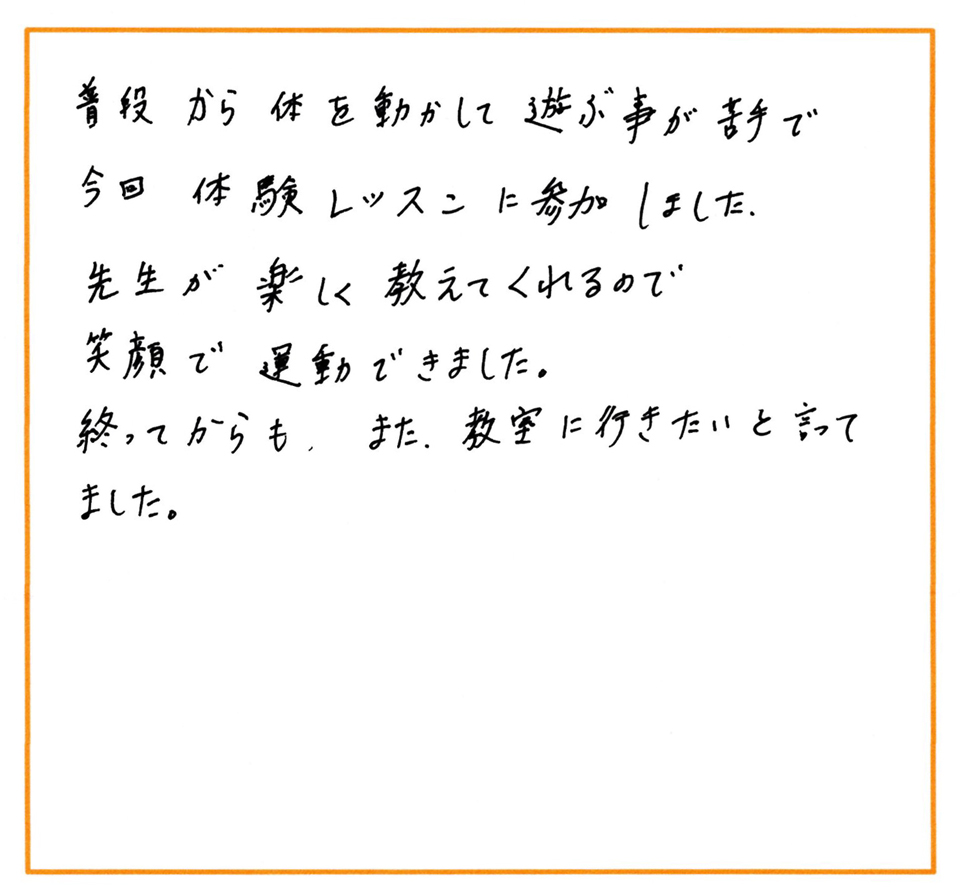 普段から体を動かして遊ぶ事が苦手で
今回 体験レッスンに参加しました.
先生が楽しく教えてくれるので
笑顔で運動できました。
終ってからも、また、教室に行きたいと言って
ました。